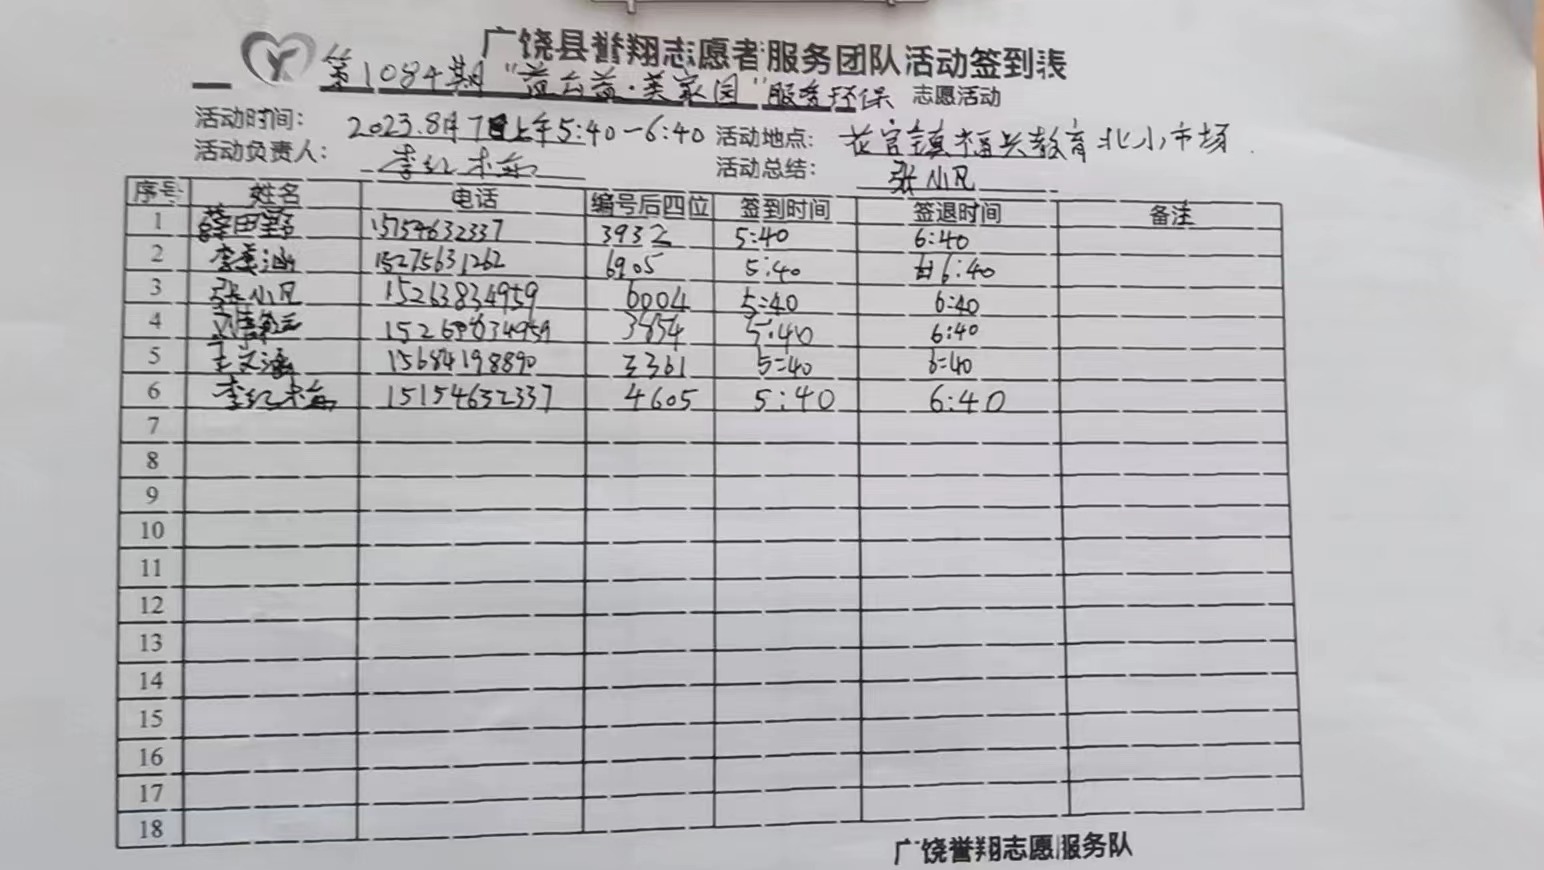 广饶县誉翔志愿者服务团队活动签到表
第1084期“益公益·美家园”服务环保 志愿活动
活动时间: 2023.8月7日上午5:40-6:40 活动地点: 花官镇福兴教育北小市场.
活动负责人: 李红梅 活动总结: 张小凡
序号 姓名 电话 编号后四位 签到时间 签退时间 备注
1 薛田野 15154632337 3932 5:40 6:40
2 李 涵 15275631262 6905 5:40 6:40
3 张小凡 15263834959 6004 5:40 6:40
4 刘 5:40 6:40
5 王文涵 15684198890 3361 5:40 6:40
6 李红梅 15154632337 4605 5:40 6:40
7
8
9
10
11
12
13
14
15
16
17
18
广饶誉翔志愿服务队